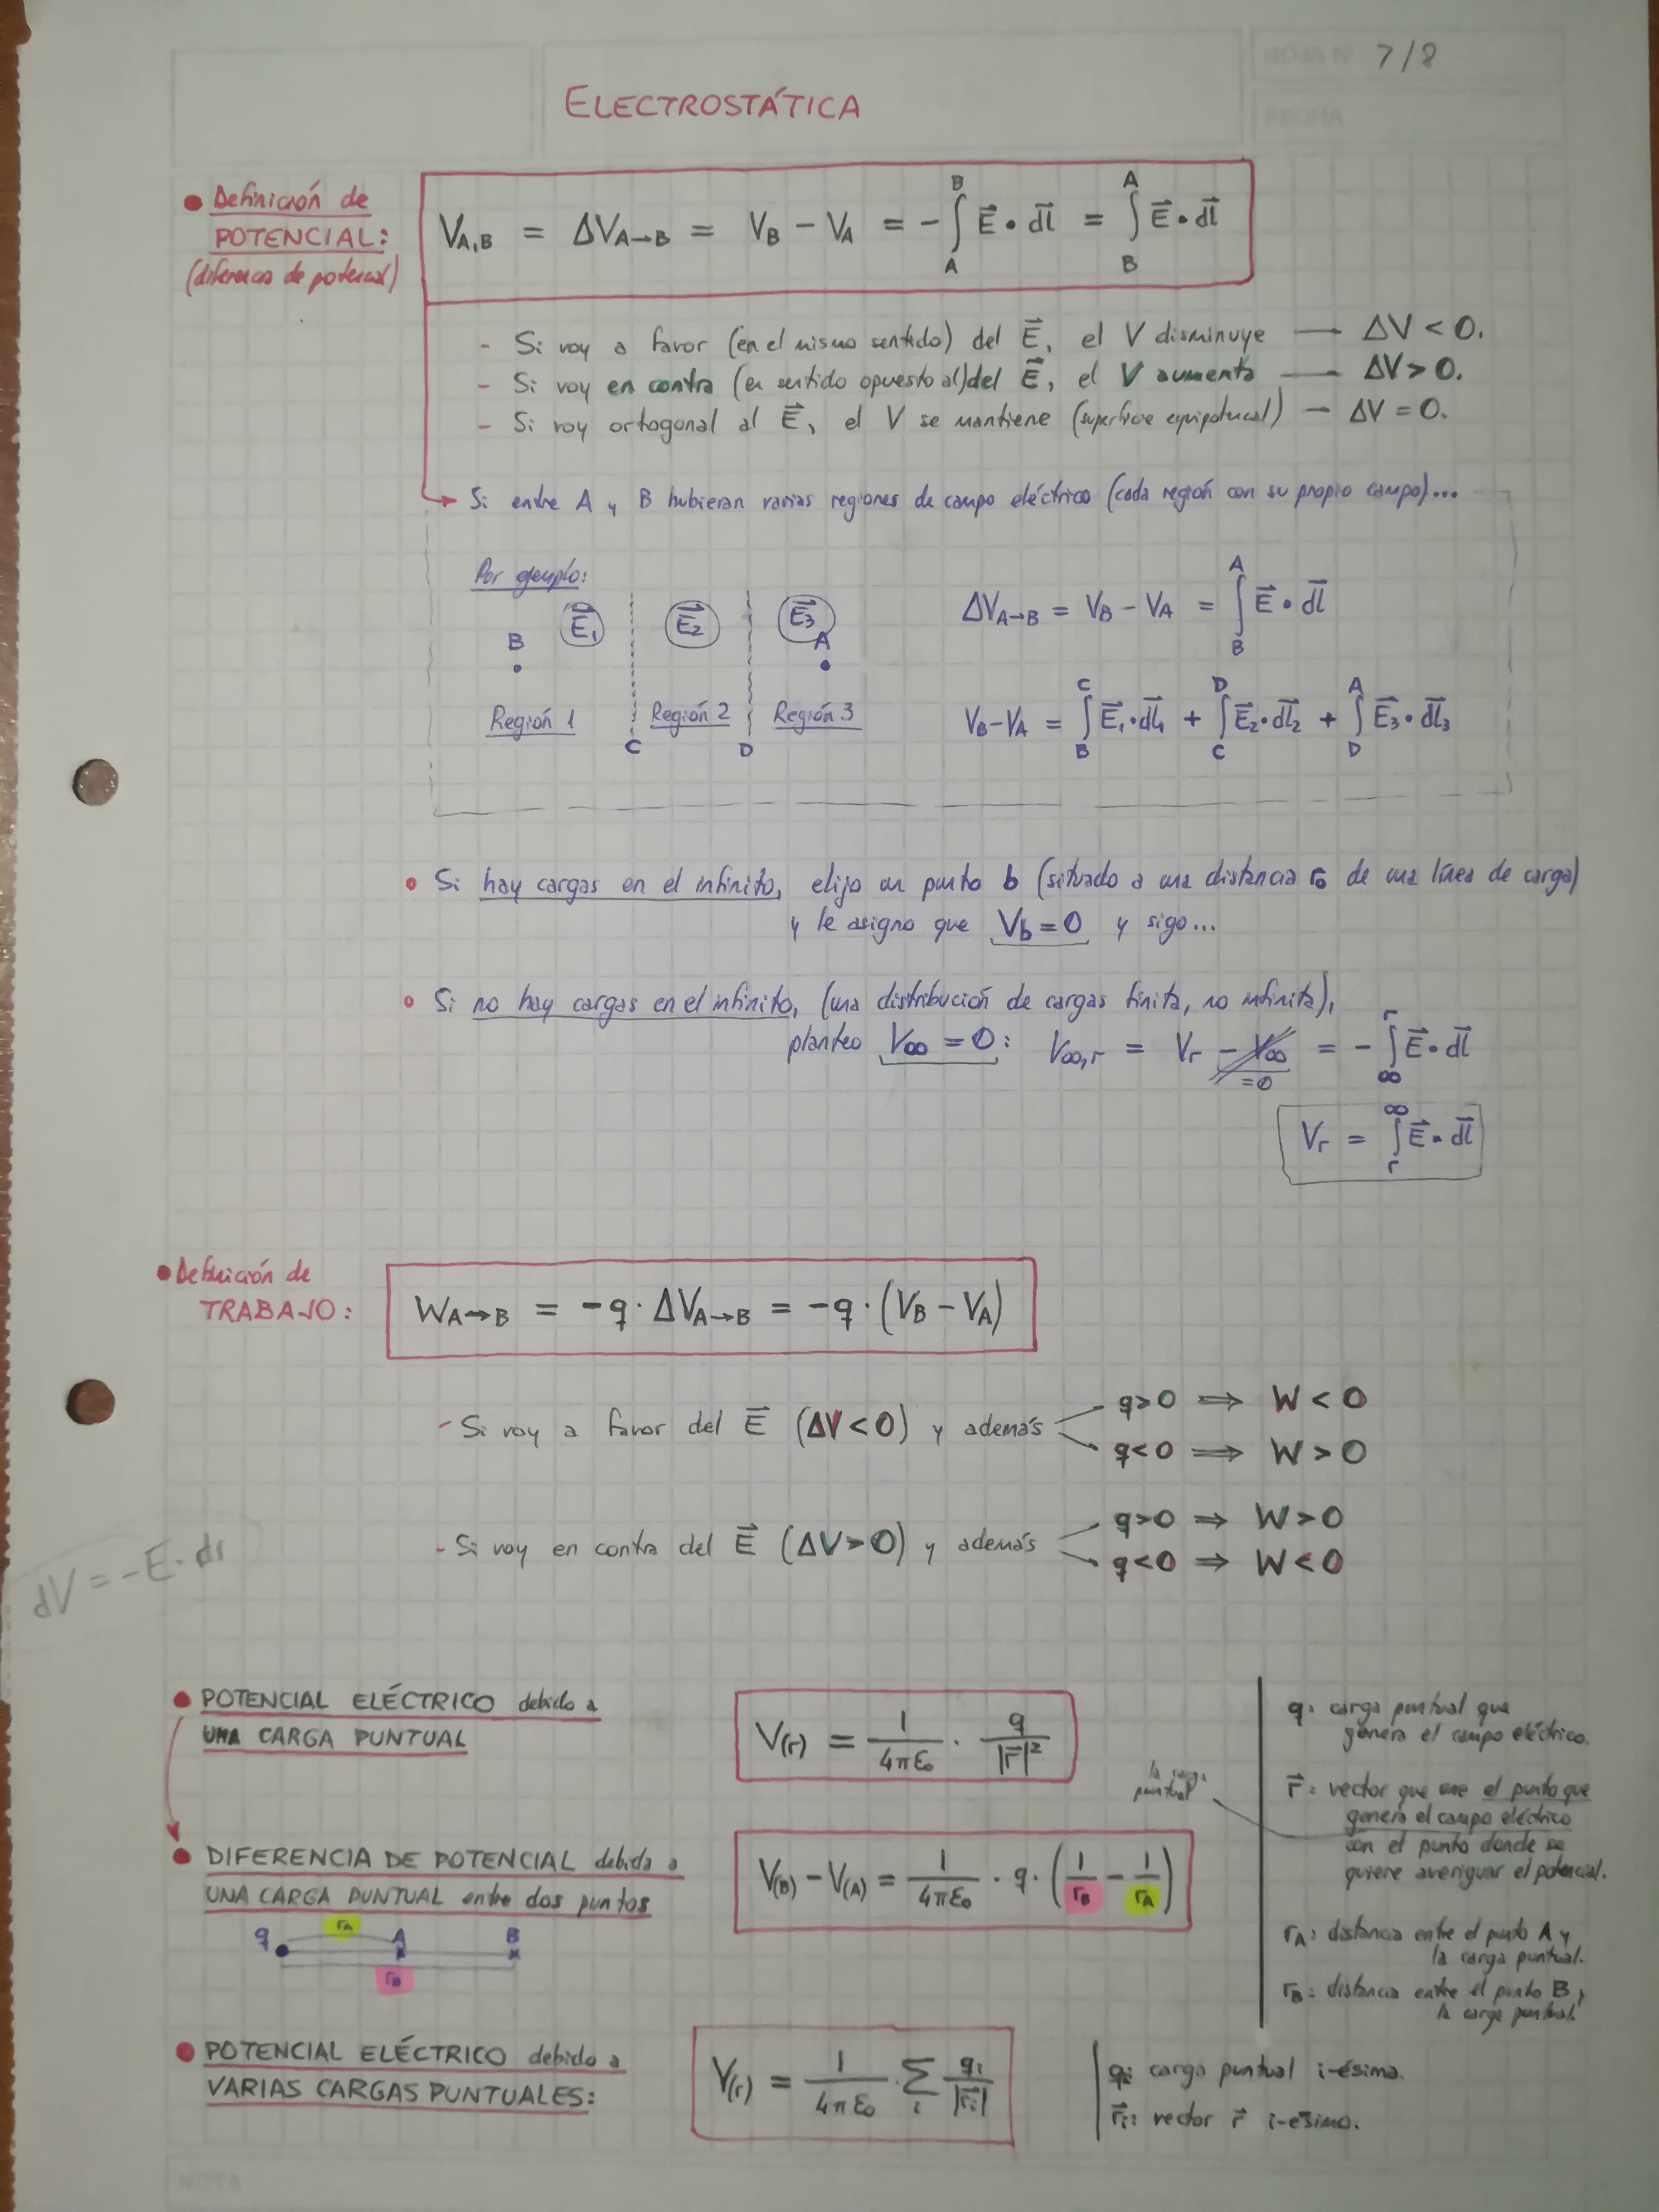 HOJA Nº 7/8
ELECTROSTÁTICA
FECHA
• Definición de
POTENCIAL:
(diferencia de potencial)
V_{A,B} = ΔV_{A→B} = V_B − V_A = −∫_A^B E⃗ • dl⃗ = ∫_B^A E⃗ • dl⃗
- Si voy a favor (en el mismo sentido) del E⃗, el V disminuye — ΔV < 0.
- Si voy en contra (en sentido opuesto al) del E⃗, el V aumenta — ΔV > 0.
- Si voy ortogonal al E⃗, el V se mantiene (superficie equipotencial) — ΔV = 0.
→ Si entre A y B hubieran varias regiones de campo eléctrico (cada región con su propio campo)...
Por ejemplo:
B E⃗₁ E⃗₂ E⃗₃ A
Región 1 Región 2 Región 3
C D
ΔV_{A→B} = V_B − V_A = ∫_B^A E⃗ • dl⃗
V_B − V_A = ∫_B^C E⃗₁ • dl⃗₁ + ∫_C^D E⃗₂ • dl⃗₂ + ∫_D^A E⃗₃ • dl⃗₃
• Si hay cargas en el infinito, elijo un punto b (situado a una distancia r₀ de una línea de carga)
y le asigno que V_b = 0 y sigo...
• Si no hay cargas en el infinito, (una distribución de cargas finita, no infinita),
planteo V_∞ = 0: V_{∞,r} = V_r − V_∞ = −∫_∞^r E⃗ • dl⃗
=0
V_r = ∫_r^∞ E⃗ • dl⃗
• Definición de
TRABAJO:
W_{A→B} = −q · ΔV_{A→B} = −q · (V_B − V_A)
- Si voy a favor del E⃗ (ΔV < 0) y además
q>0 ⟹ W < 0
q<0 ⟹ W > 0
- Si voy en contra del E⃗ (ΔV > 0) y además
q>0 ⟹ W > 0
q<0 ⟹ W < 0
dV = −E · dr
• POTENCIAL ELÉCTRICO debido a
UNA CARGA PUNTUAL
V(r) = 1/(4πε₀) · q/|r⃗|²
q: carga puntual que
genera el campo eléctrico.
la carga
puntual
r⃗: vector que une el punto que
genera el campo eléctrico
con el punto donde se
quiere averiguar el potencial.
• DIFERENCIA DE POTENCIAL debida a
UNA CARGA PUNTUAL entre dos puntos
V(B) − V(A) = 1/(4πε₀) · q · (1/r_B − 1/r_A)
q r_A A B
r_B
r_A: distancia entre el punto A y
la carga puntual.
r_B: distancia entre el punto B y
la carga puntual
• POTENCIAL ELÉCTRICO debido a
VARIAS CARGAS PUNTUALES:
V(r) = 1/(4πε₀) · Σ_i q_i/|r⃗_i|
q_i: carga puntual i-ésima.
r⃗_i: vector r⃗ i-ésimo.
NOTA